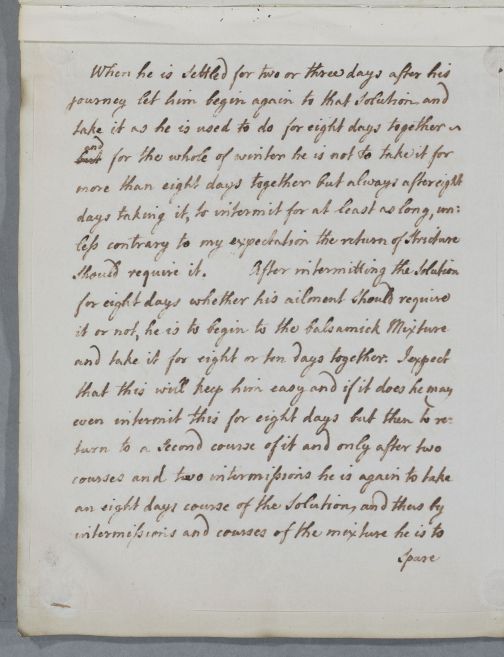 When he is settled for two or three days after his
journey let him begin again to that Solution and
take it as he is used to do for eight days together ~
and
but for the whole of winter he is not to take it for
more than eight days together but always after eight
days taking it, to intermit for at least as long, un=
less contrary to my expectation the return of Stricture
should require it. After intermitting the Solution
for eight days whether his ailment should require
it or not, he is to begin to the balsamick Mixture
and take it for eight or ten days together. I expect
that this will keep him easy and if it does he may
even intermit this for eight days but then to re=
turn to a Second course of it and only after two
courses and two intermissions he is again to take
an eight days course of the Solution, and thus by
intermissions and courses of the mixture he is to
Spare